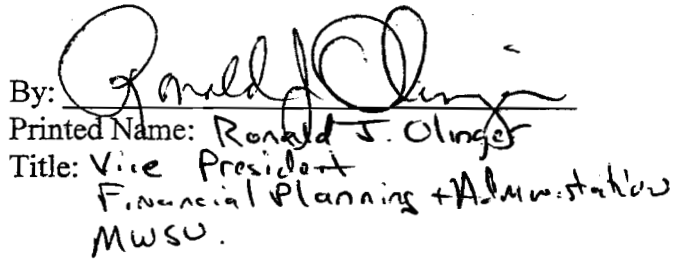 By: Ronald J Olinger
Printed Name: Ronald J. Olinger
Title: Vice President
Financial Planning + Administration
MWSU.